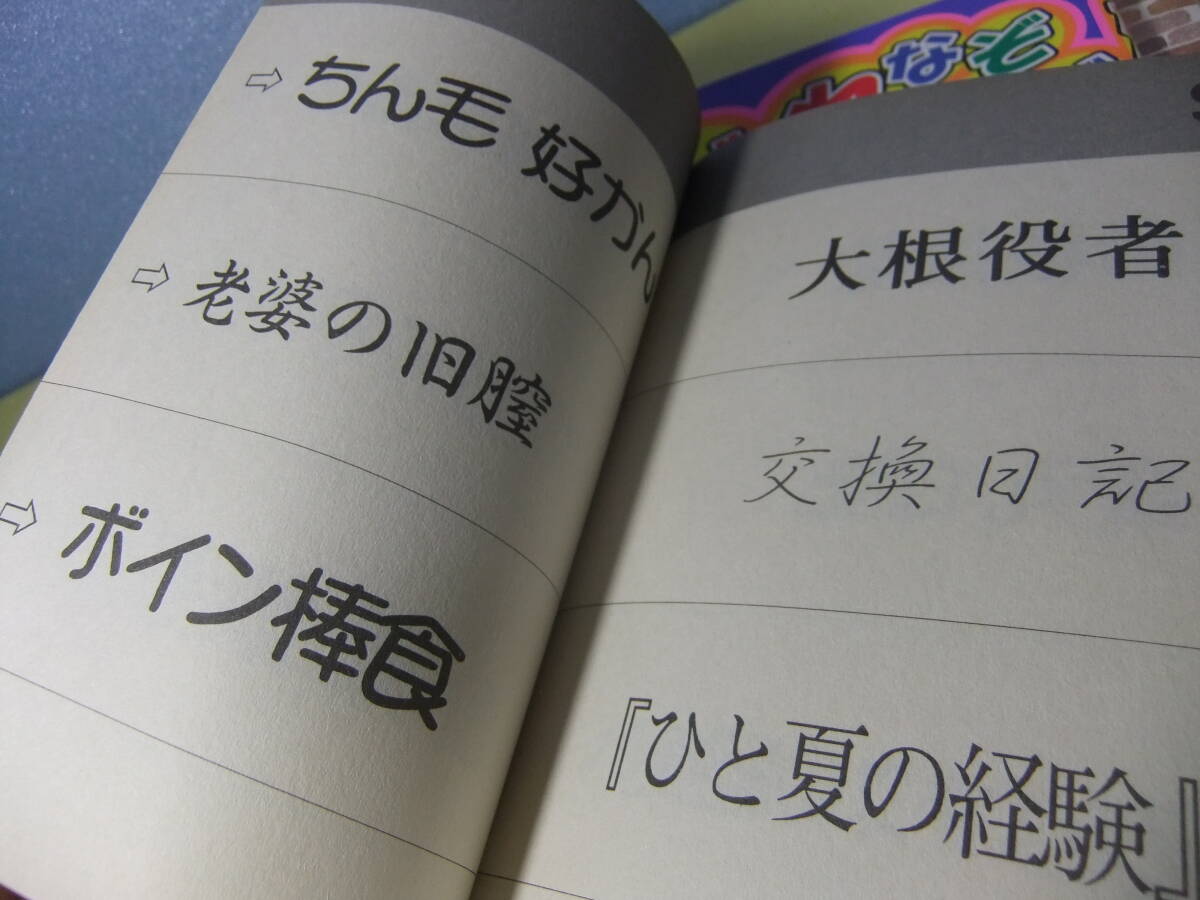 なぞ
⇨ ちん毛 好かん
⇨ 老婆の旧膣
⇨ ボイン棒食
大根役者
交換日記
『ひと夏の経験』